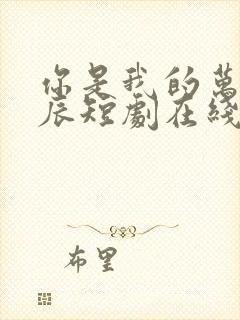 你是我的萬
辰短劇在綫
布里